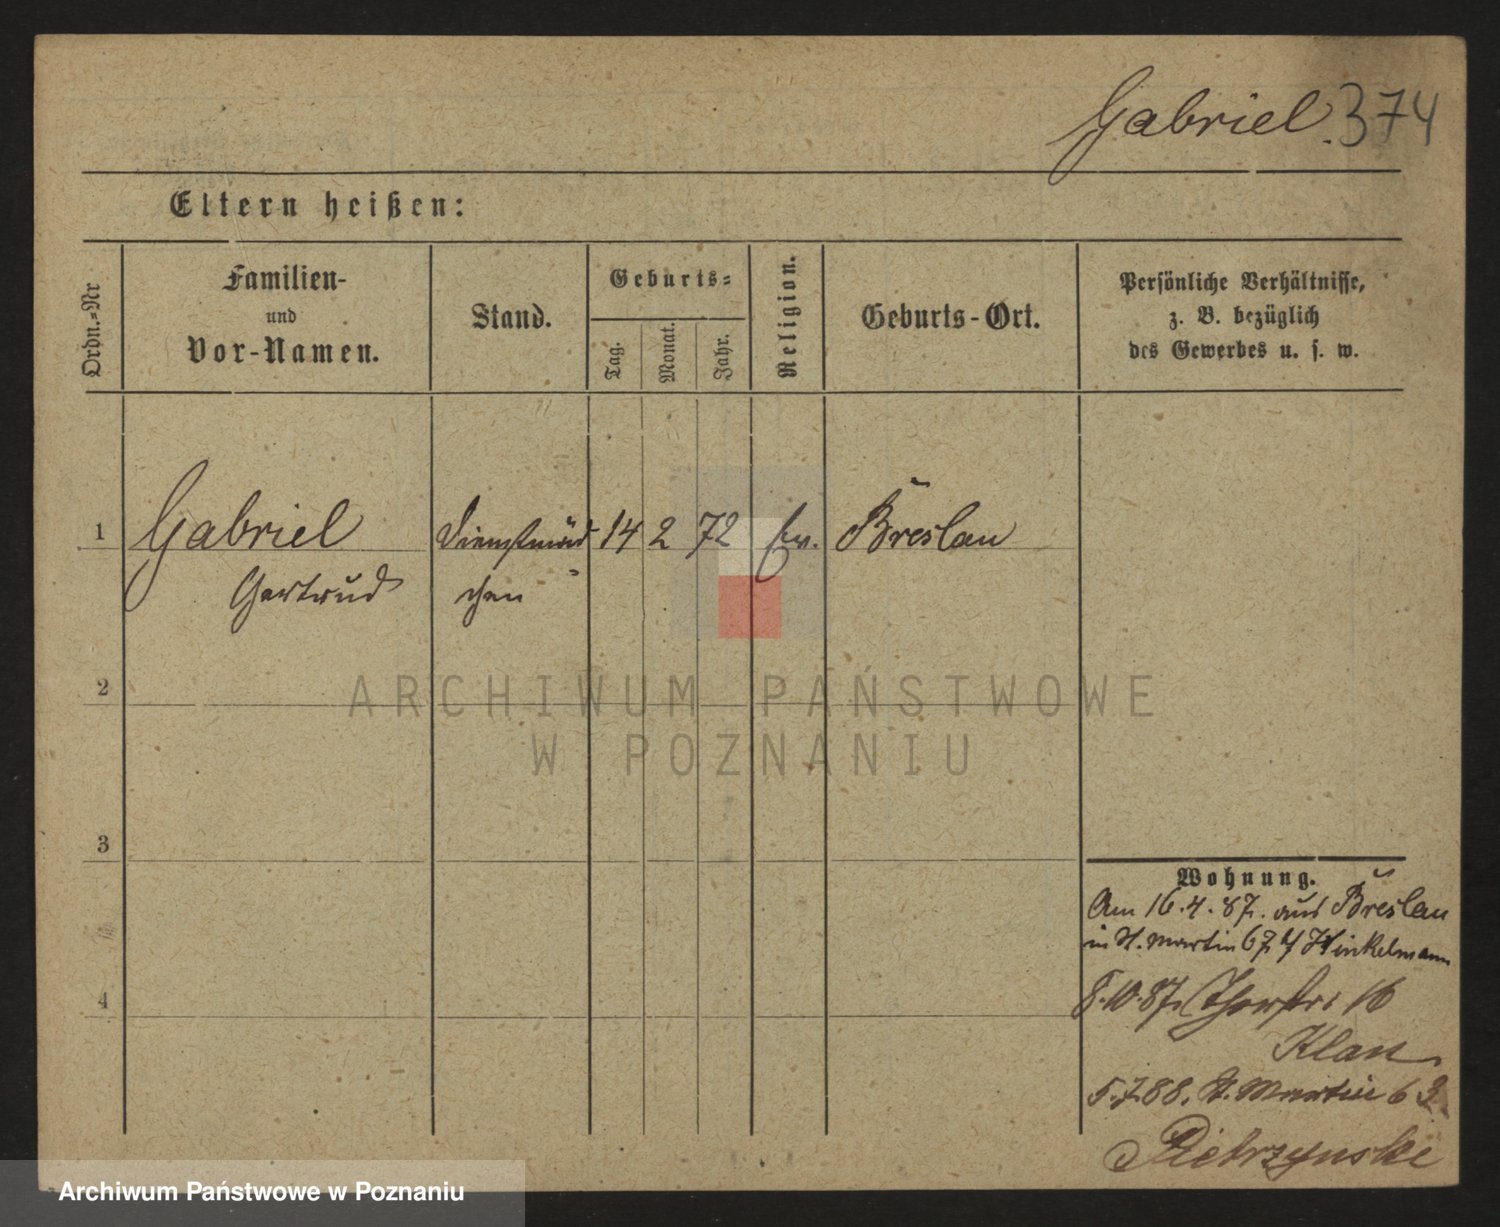 Gabriel. 374
Eltern heißen:
Ordn.-Nr
Familien-
und
Vor-Namen.
Stand.
Geburts-
Tag.
Monat.
Jahr.
Religion.
Geburts-Ort.
Persönliche Verhältnisse,
z. B. bezüglich
des Gewerbes u. s. w.
1 Gabriel Dienstmäd 14 2 72 ev. Breslau
Gertrud chen
2
ARCHIWUM PAŃSTWOWE
W POZNANIU
3
Wohnung.
Am 16.4.87. aus Breslau
in St. Martin 67 Winkelmann
4
8.10.87. 16
Klau
5.7.88. St. Martin 63
Pietrzynski
Archiwum Państwowe w Poznaniu